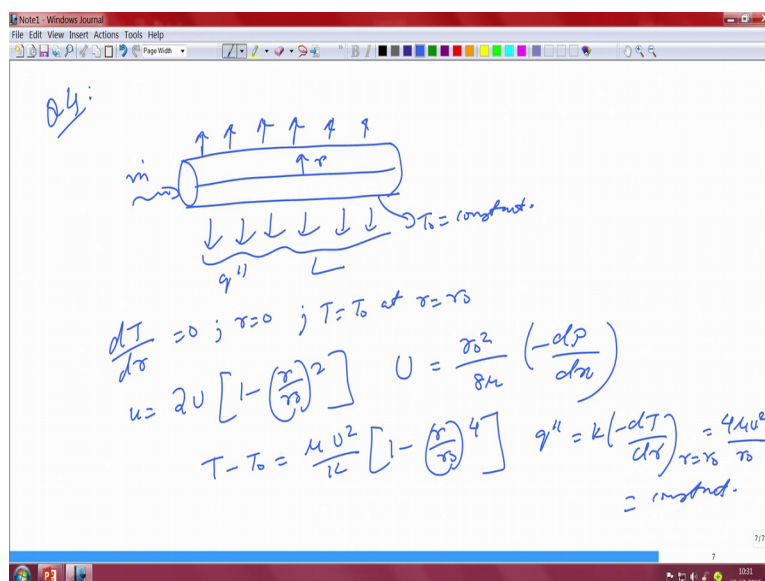 Note1 - Windows Journal
File Edit View Insert Actions Tools Help
Page Width
Q4:
ṁ
r
T₀ = constant.
q''
L
dT/dr = 0 ; r=0 ; T = T₀ at r=r₀
u = 2U [1 - (r/r₀)²] U = r₀²/8μ (-dP/dx)
T - T₀ = μU²/k [1 - (r/r₀)⁴] q'' = k(-dT/dr)r=r₀ = 4μU²/r₀
= constant.
7/7
7
10:31